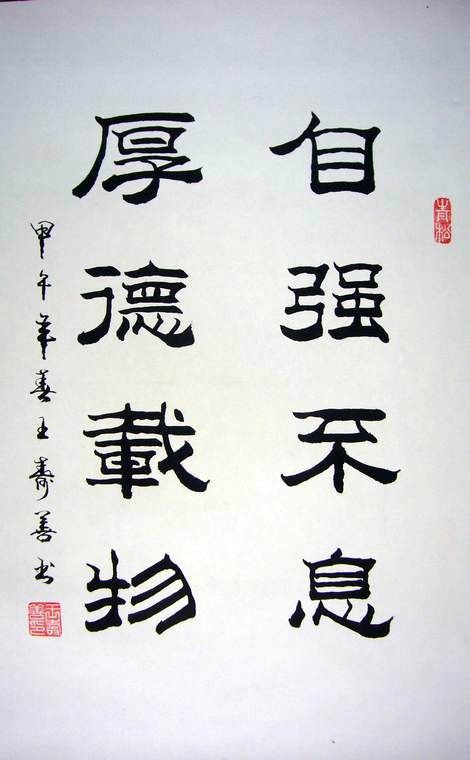 自强不息
厚德載物
甲午年春王壽善书
青松